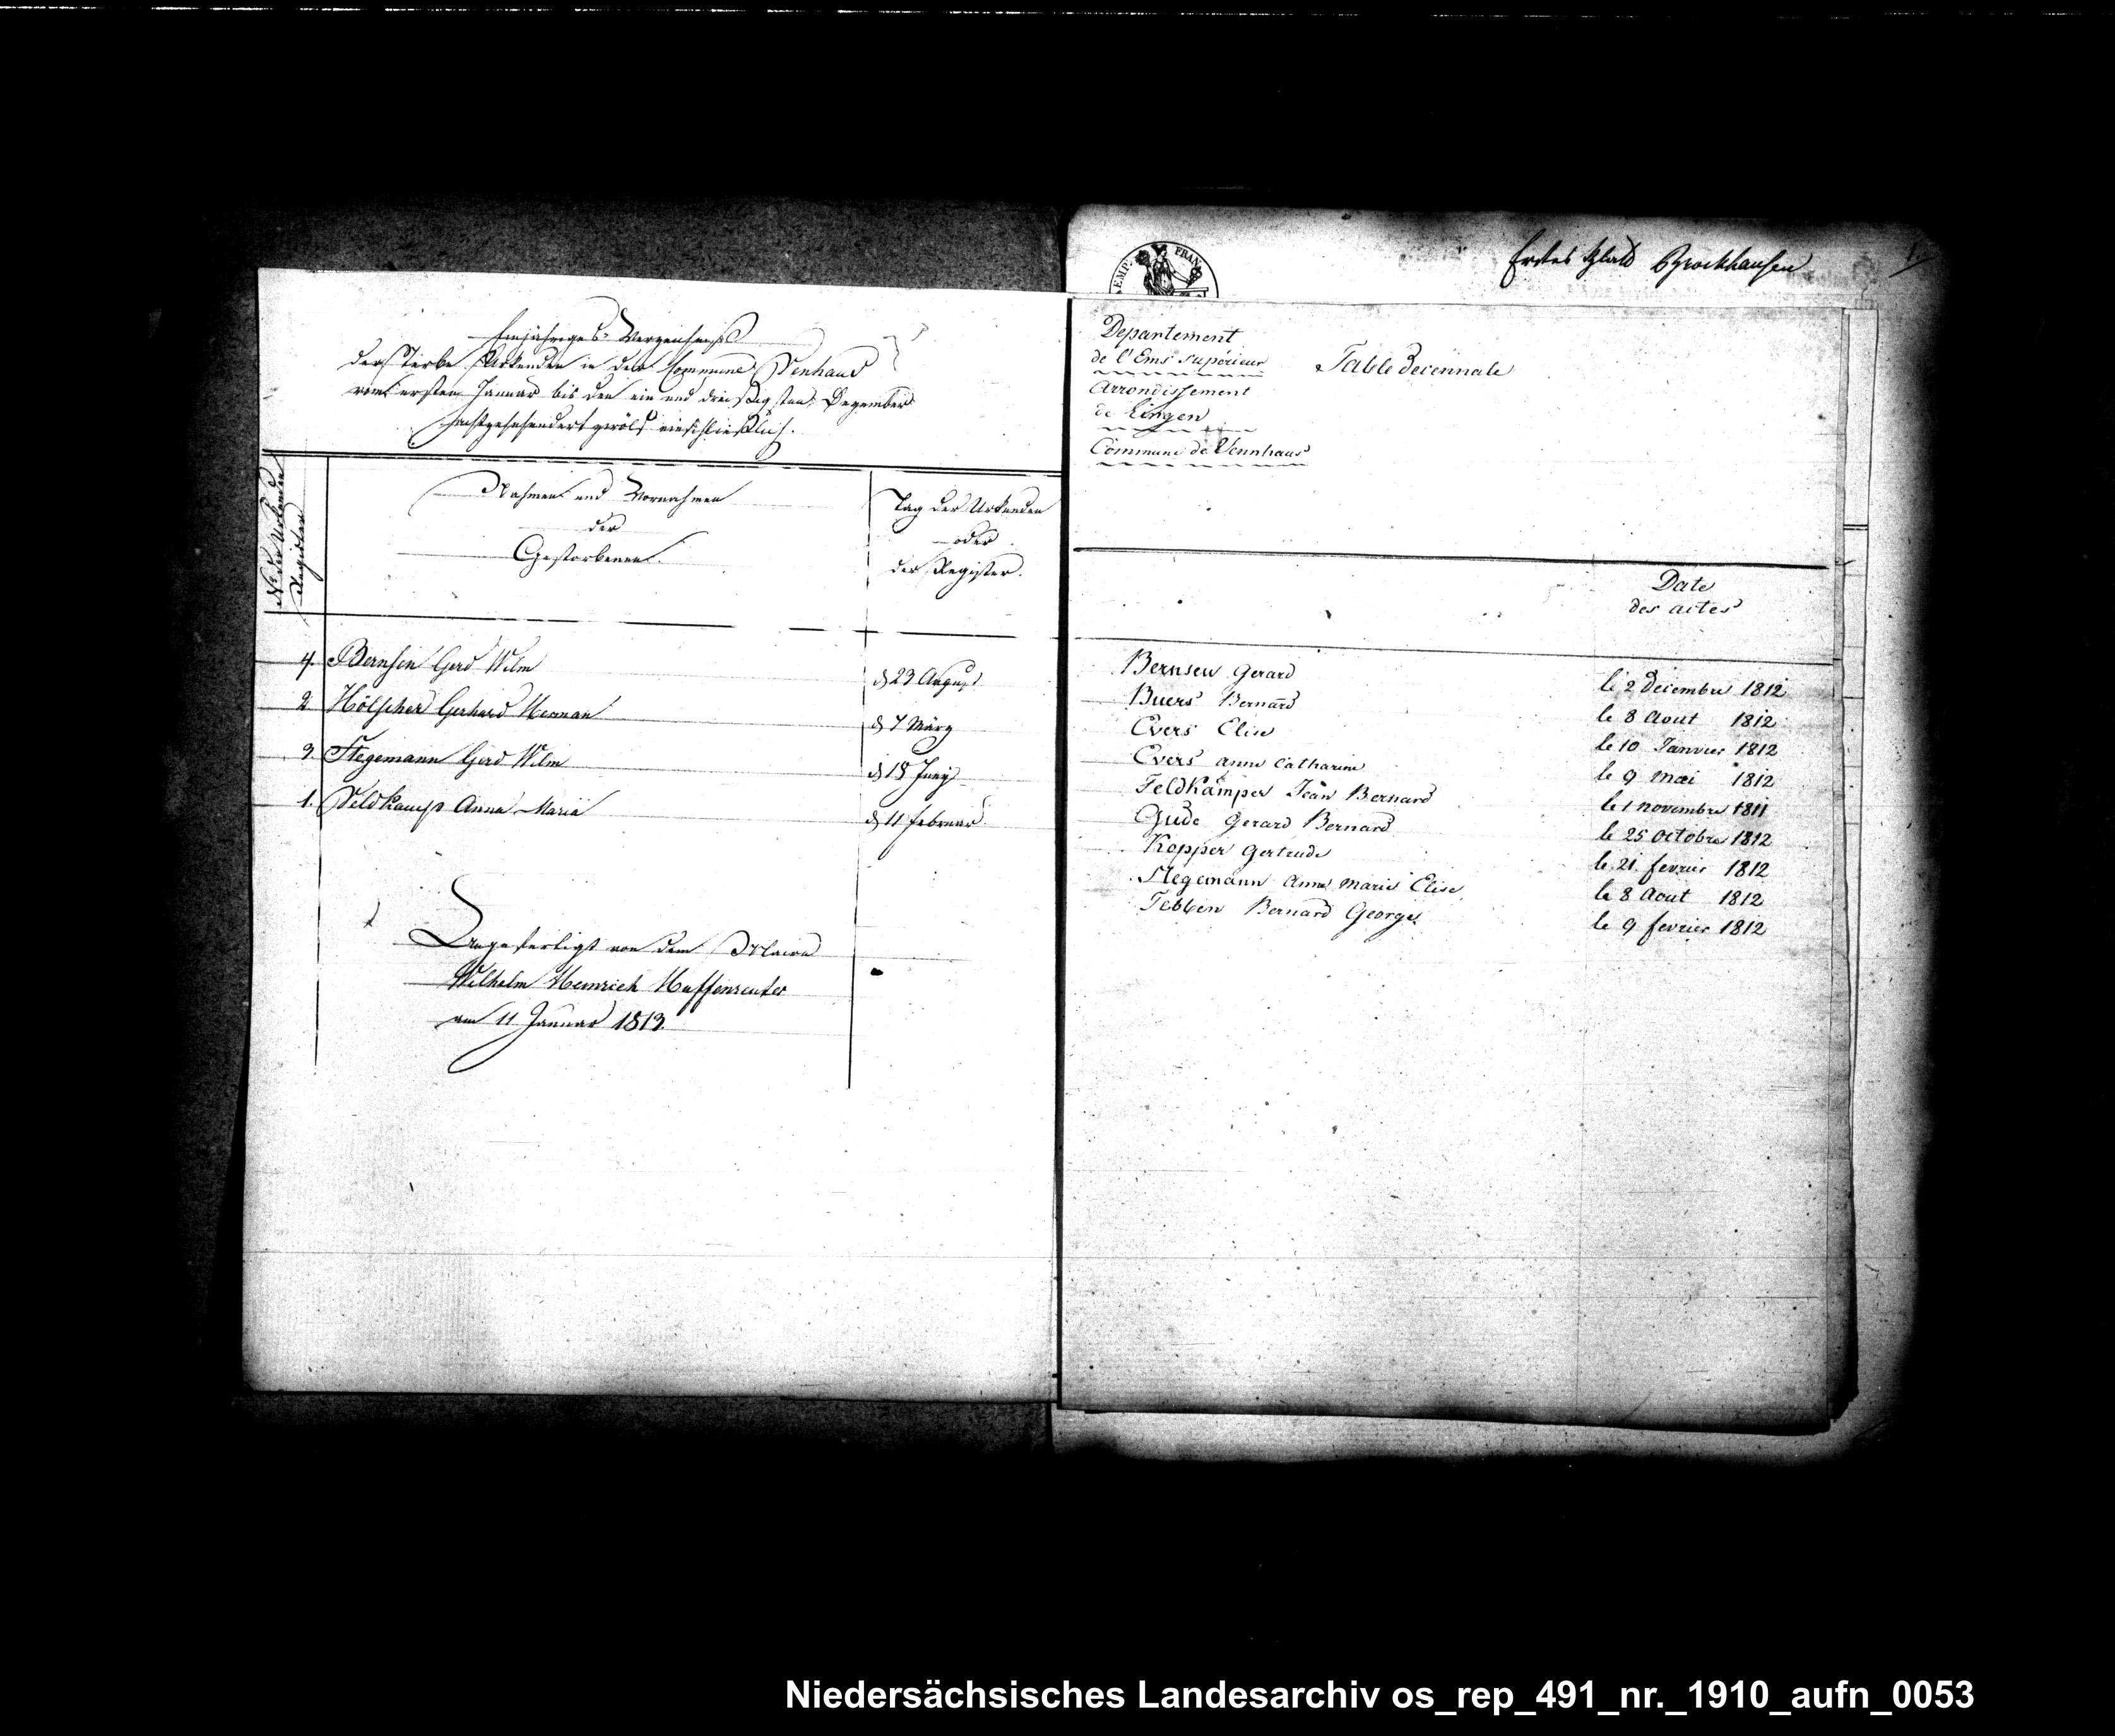 Einjähriges Verzeichniß
der Sterbe Urkunden in der Commune Venhaus
vom ersten Januar bis den ein und dreißigsten Dezember
achtzehnhundert zwölf einschließlich.
No der Urkunde
Register
Nahmen und Vornahmen
der
Gestorbenen.
Tag der Urkunden
oder
der Register.
4. Bernsen Gerd Wilm d 23 August
2 Hölscher Gerhard Herman d 7 März
3. Stegemann Gerd Wilm d 18 Juny
1. Veldkamp Anna Maria d 11 Februar
Angefertigt von dem Maire
Wilhelm Heinrich Haffenreuter
am 11 Januar 1813.
EMP. FRAN
Erstes Blatt Brockhausen
1.
Departement
de l'Ems supérieur
Table decennale
Arrondissement
de Lingen
Commune de Vennhaus
Date
des actes
Bernsen Gerard le 2 Decembre 1812
Buers Bernard le 8 Aout 1812
Evers Elise le 10 Janvier 1812
Evers anne Catharine le 9 mai 1812
Feldkämper Jean Bernard le 1 novembre 1811
Gude Gerard Bernard le 25 octobre 1812
Kopper Gertrude le 21 fevrier 1812
Stegemann Anne Marie Elise le 8 Aout 1812
Tebben Bernard George le 9 fevrier 1812
Niedersächsisches Landesarchiv os_rep_491_nr._1910_aufn_0053